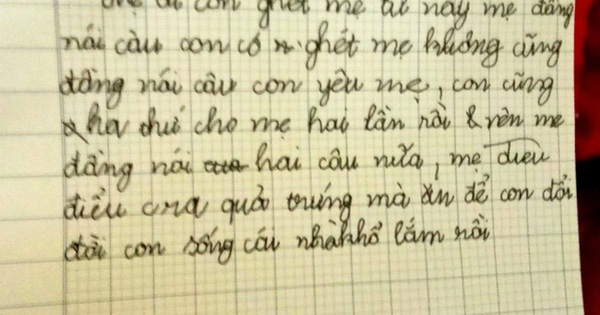 mẹ ơi con ghét mẹ từ nay mẹ đừng
nói câu con có ghét mẹ không cũng
đừng nói câu con yêu mẹ, con cũng
tha thứ cho mẹ hai lần rồi & nên mẹ
đừng nói hai câu nữa, mẹ
ra quả trứng mà ăn để con đổi
đời con sống cái nhà khổ lắm rồi